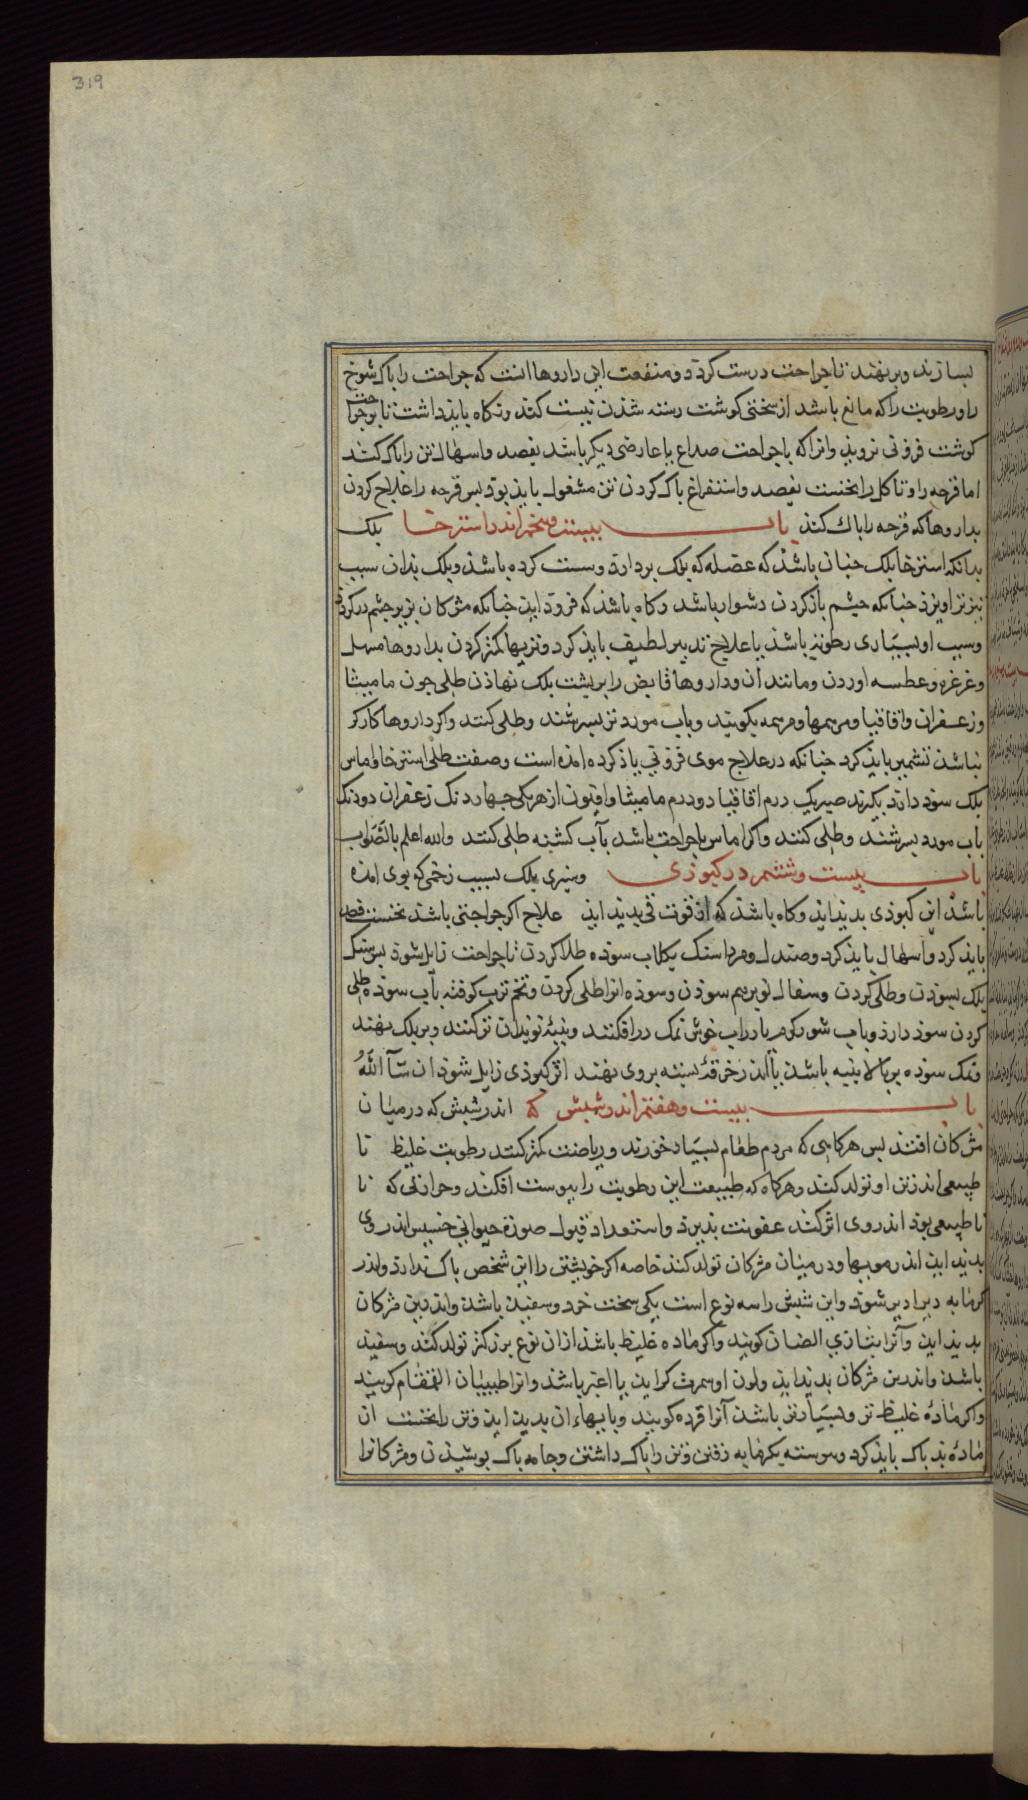 319
بسازند و بر نهند تا جراحت درست کردد و منفعت این داروها انست که جراحت را باک شوخ
را و رطوبت را که مانع باشد از سختی کوشت رسته شذن نیست کند و نکاه بایذ داشت تا بر جراحت
کوشت فزونی نرویذ و انرا که با جراحت صداع یا عارضی دیکر باشد بفصد و اسهال تن را باک کنند
اما قرحه را و تاکل را بخست بفصد و استفراغ باک کردن تن مشغول بایذ بوذ بس قرحه را علاج کردن
بداروها که قرحه را باك کنذ باب بیست و بنجم اندر استرخا بلک
بدانکه استرخا بلک جنان باشذ که عضله که بلک بردارذ و سست کرده باشذ و بلک بذان سبب
جنانکه جشم باز کردن دشوار باشد و کاه باشذ که فروذ ایذ جنانکه مژکان بزیر جشم در کرذ
و سبب او بسیاری رطوبه باشذ یا علاج تدبیر لطیف بایذ کرد و تریها کمتر کردن بداروها مسهل
و غرغره و عطسه اوردن و مانند ان و داروها قابض را بر بشت بلک نهاذن طلی جون مامیثا
و زعفران و اقاقیا و مر بهمها و مرهمه بکوبند و باب مورد تر بسرشند و طلی کنند و اکر داروها کارکر
نباشذ تشمیر بایذ کرد جنانکه در علاج موی فزونی یاذ کرده امذه است و صفت طلی استرخا و اماس
بلک سوذ دارذ بکیرند صبر یک درم اقاقیا دو درم مامیثا و افیون از هر یکی جهار دنک زعفران دو دنک
باب مورد بسرشند و طلی کنند و اکر اماس با جراحت باشد بآب کشنه طلی کنند و الله اعلم بالصّواب
باب بیست و ششم در کبوزی و سبزی بلک بسبب زخمی که بوی امذه
باشذ این کبوذی بدیذ ایذ و کاه باشذ که از قوت قی بدیذ ایذ علاج اکر جراحتی باشذ نخست فصد
بایذ کرد و اسهال بایذ کرد و صندل و مرداسنک بکلاب سوذه طلا کردن تا جراحت زایل شوذ بس سنک
بلک بسوذن و طلی کردن و سفال نو بر هم سوذن و سوذه انرا طلی کردن و تخم ترب کوفته بآب سوذه طلی
کردن سوذ دارذ و باب شور کرم یا در اب خوش نمک در افکنند و بنبهٔ نو بذان تر کنند و بر بلک نهند
و نمک سوذه بر بالا بنبه باشذ یا اندر خرقهٔ بسته بروی نهند اثر کبوذی زایل شوذ ان شآ اللهُ
باب بیست و هفتم اندر شبش که اندر شبش که در میان
مژکان افتند بس هرکاهی که مردم طعام بسیار خورند و ریاضت کمتر کنند رطوبت غلیظ نا
طبیعی اندر تن او تولد کنذ و هرکاه که طبیعت این رطوبت را ببوست افکند و حرارتی که نا
نا طبیعی بوذ اندر وی اثر کند عفونت بذیرذ و استعداد قبول صورة حیوانی خسیس اندر وی
بدیذ ایذ اندر مویها و در میان مژکان تولد کنذ خاصه اکر خویشتن را این شخص باک ندارذ و اندر
کرمابه دیرا دیر شوذ و این شبش را سه نوع است یکی سخت خرد و سفیذ باشذ و اندر بن مژکان
بدیذ ایذ و آنرا بتازی الصبان کویند و اکر ماده غلیظ باشذ ازان نوع بزرکتر تولد کنذ و سفیذ
باشذ و اندر بن مژکان بدیذ ایذ و لون او سمرت کراید یا اغبر باشذ و انرا طبیبان القمقام کویند
و اکر مادهٔ غلیظ تر و بسیارتر باشذ آنرا قرده کویند و بایها ان بدیذ ایذ و تن را بخست ان
مادهٔ بذ باک بایذ کرد و بیوسته بکرمابه رفتن و تن را باک داشتن و جامه باک بوشیذن و مژکانرا